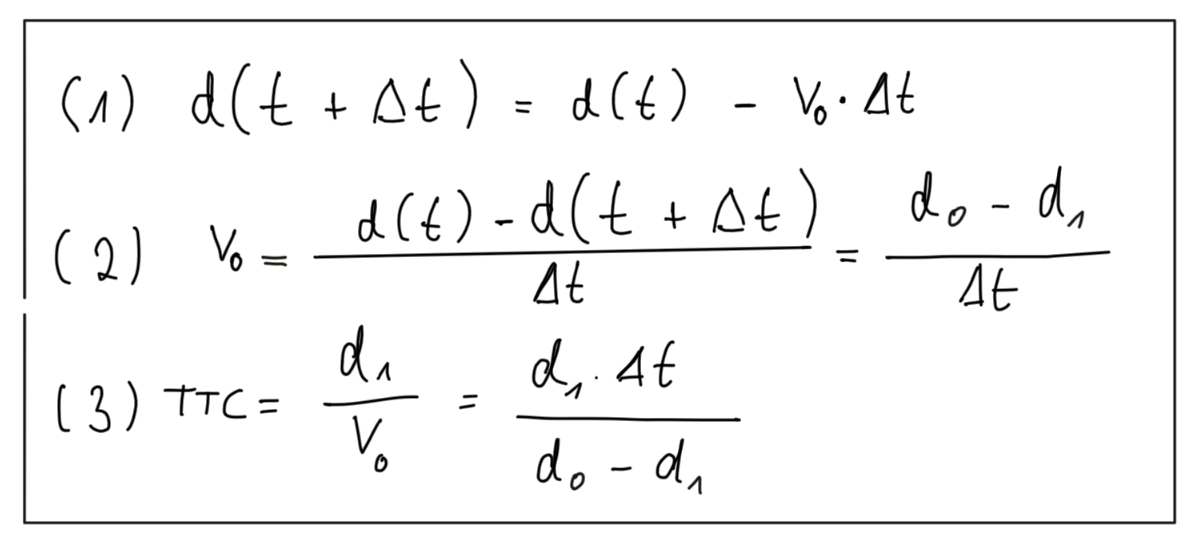 (1) d(t + Δt) = d(t) - V₀ · Δt
(2) V₀ = (d(t) - d(t + Δt)) / Δt = (d₀ - d₁) / Δt
(3) TTC = d₁ / V₀ = (d₁ · Δt) / (d₀ - d₁)